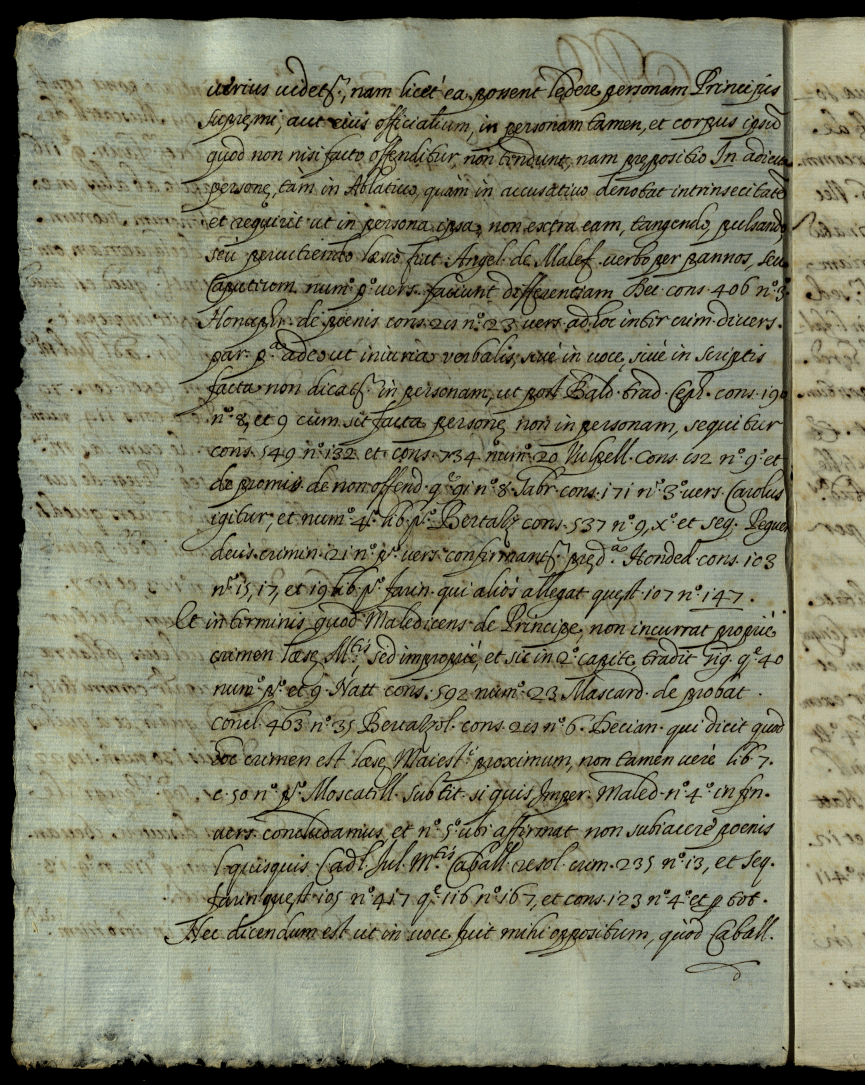 verius videtr, nam licèt ea possent ledere personam Principis
supremi, aut eius officialium, in personam tamen, et corpus ipsiũ
quod non nisi facto offenditur, non tendunt, nam prepositio In adiecta
personę, tàm in Ablatiuo, quàm in accusatiuo denotat intrinsecitatẽ
et requirit ut in persona ipsa, non extra eam, tangendo, pulsando
seù percutiendo læsio fiat Angel. de Malef. verbo per pannos, seu
Caputium num.º p.º vers. faciunt differentiam Dec. cons. 406 n.º 3.º
Honophr. de poenis cons. 211 n.º 23 vers. ad hoc inter crim. divers.
par. p.ª adeo ut iniuria verbalis, siuè in voce, siuè in scriptis
facta non dicatr in personam, ut post Bald. trad. Ceph. cons. 190
n.º 8, et 9 cum sit facta personę, non in personam, sequitur
cons. 549 n.º 132 et cons. 734 num.º 20 Vulpell. Cons. 112 n.º 9.º et
de promis. de non offend. q.e 91 n.º 8 Gabr. cons. 171 n.º 3.º vers. Carolus
igitur, et num.º 4.º lib. p.º Bertaz. cons. 537 n.º 9, x.º et seq. Peguer.
decis. crimin. 21 n.º p.º vers. confirmantr pręd.ª Honded. cons. 103
n.º 15, 17, et 19 lib. p.º Farin. qui alios allegat quest. 107 n.º 147.
Et in terminis quod Maledicens de Principe, non incurrat propriè
crimen læsę M.tis, sed impropriè, et sic in 2.º capite, tradit Gig. q.e 40
num.º p.º et 9 Natt. cons. 592 num.º 23 Mascard. de probat.
concl. 463 n.º 35 Bertazol. cons. 211 n.º 6. Decian. qui dicit quod
hoc crimen est læsę Maiest.s proximum, non tamen verè lib. 7.
c. 50 n.º p.º Moscatill. sub tit. si quis Imper. Maled. n.º 4.º in fin.
vers. concludamus, et n.º 5.º ubi affirmat non subiacere poenis
l. quisquis C. ad l. Jul. M.tis Caball. resol. crim. 235 n.º 13, et seq.
Farin. quest. 105 n.º 417 q.e 116 n.º 167, et cons. 123 n.º 4.º et p. tot.
Nec dicendum est ut in voce fuit mihi oppositum, quòd Caball.